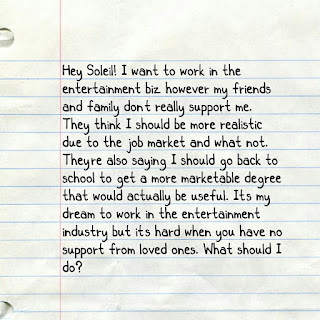 Hey Soleil! I want to work in the
entertainment biz however my friends
and family dont really support me.
They think I should be more realistic
due to the job market and what not.
Theyre also saying I should go back to
school to get a more marketable degree
that would actually be useful. Its my
dream to work in the entertainment
industry but its hard when you have no
support from loved ones. What should I
do?